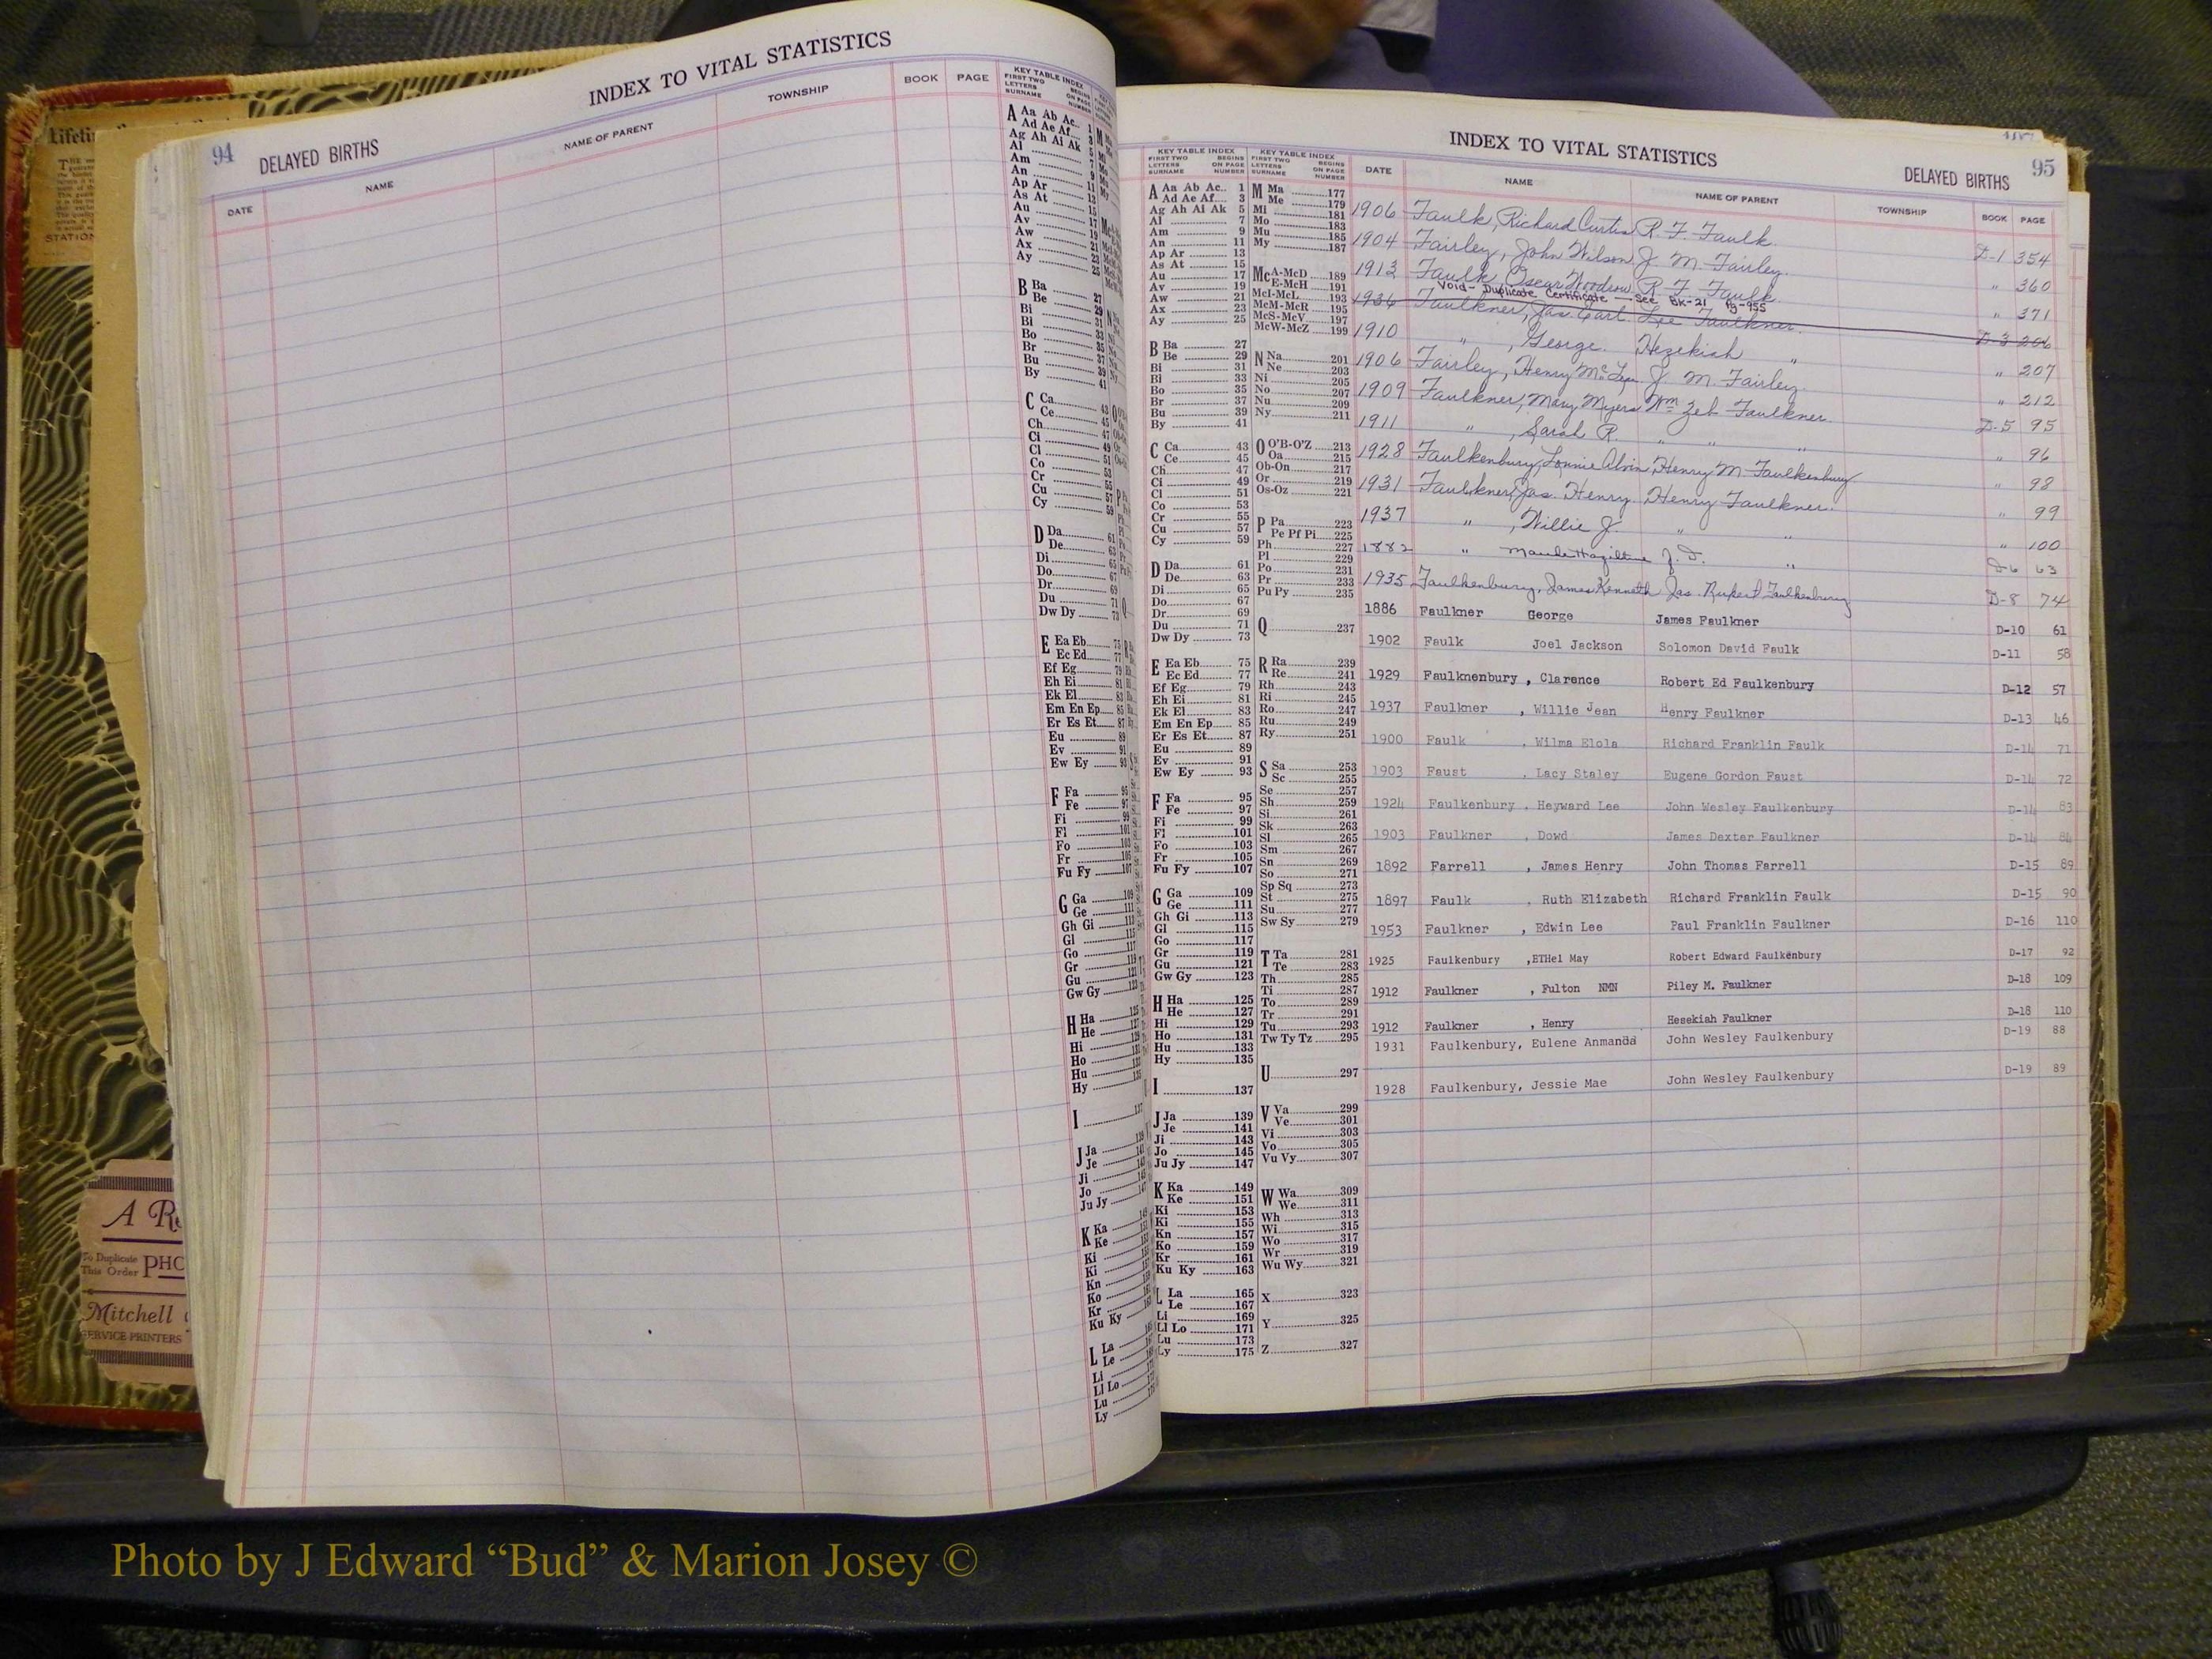 94 DELAYED BIRTHS
INDEX TO VITAL STATISTICS
DATE NAME NAME OF PARENT TOWNSHIP BOOK PAGE
KEY TABLE INDEX
FIRST TWO LETTERS SURNAME BEGINS ON PAGE NUMBER
INDEX TO VITAL STATISTICS
DELAYED BIRTHS 95
DATE NAME NAME OF PARENT TOWNSHIP BOOK PAGE
1906 Faulk, Richard Curtis R. F. Faulk D-1 354
1904 Fairley, John Wilson J. M. Fairley " 360
1913 Faulk, Oscar Woodrow R. F. Faulk " 371
Void - Duplicate Certificate - See BK-21 Pg-955
1936 Faulkner, Jas. Earl Lee Faulkner D-3 206
1910 " , George Hezekiah " " 207
1906 Fairley, Henry McLean J. M. Fairley " 212
1909 Faulkner, Mary Myers Wm Zeb Faulkner D-5 95
1911 " , Sarah R. " " " " 96
1928 Faulkenbury, Lonnie Alvin Henry M. Faulkenbury " 98
1931 Faulkner, Jas. Henry Henry Faulkner " 99
1937 " , Willie J. " " " 100
1882 " Maude Hazeltine J. D. " D-6 63
1935 Faulkenbury, James Kenneth Jas. Rupert Faulkenbury D-8 74
1886 Faulkner George James Faulkner D-10 61
1902 Faulk Joel Jackson Solomon David Faulk D-11 58
1929 Faulknenbury , Clarence Robert Ed Faulkenbury D-12 57
1937 Faulkner , Willie Jean Henry Faulkner D-13 46
1900 Faulk , Wilma Elola Richard Franklin Faulk D-14 71
1903 Faust , Lacy Staley Eugene Gordon Faust D-14 72
1924 Faulkenbury , Heyward Lee John Wesley Faulkenbury D-14 83
1903 Faulkner , Dowd James Dexter Faulkner D-14 84
1892 Farrell , James Henry John Thomas Farrell D-15 89
1897 Faulk , Ruth Elizabeth Richard Franklin Faulk D-15 90
1953 Faulkner , Edwin Lee Paul Franklin Faulkner D-16 110
1925 Faulkenbury ,ETHel May Robert Edward Faulkenbury D-17 92
1912 Faulkner , Fulton NMN Piley M. Faulkner D-18 109
1912 Faulkner , Henry Hesekiah Faulkner D-18 110
1931 Faulkenbury, Eulene Anmanda John Wesley Faulkenbury D-19 88
1928 Faulkenbury, Jessie Mae John Wesley Faulkenbury D-19 89
KEY TABLE INDEX
FIRST TWO LETTERS SURNAME BEGINS ON PAGE NUMBER
A Aa Ab Ac.. 1
Ad Ae Af.... 3
Ag Ah Ai Ak 5
Al 7
Am 9
An 11
Ap Ar 13
As At 15
Au 17
Av 19
Aw 21
Ax 23
Ay 25
B Ba 27
Be 29
Bi 31
Bl 33
Bo 35
Br 37
Bu 39
By 41
C Ca 43
Ce 45
Ch 47
Ci 49
Cl 51
Co 53
Cr 55
Cu 57
Cy 59
D Da 61
De 63
Di 65
Do 67
Dr 69
Du 71
Dw Dy 73
E Ea Eb 75
Ec Ed 77
Ef Eg 79
Eh Ei 81
Ek El 83
Em En Ep 85
Er Es Et 87
Eu 89
Ev 91
Ew Ey 93
F Fa 95
Fe 97
Fi 99
Fl 101
Fo 103
Fr 105
Fu Fy 107
G Ga 109
Ge 111
Gh Gi 113
Gl 115
Go 117
Gr 119
Gu 121
Gw Gy 123
H Ha 125
He 127
Hi 129
Ho 131
Hu 133
Hy 135
I 137
J Ja 139
Je 141
Ji 143
Jo 145
Ju Jy 147
K Ka 149
Ke 151
Ki 153
Ki 155
Kn 157
Ko 159
Kr 161
Ku Ky 163
L La 165
Le 167
Li 169
Ll Lo 171
Lu 173
Ly 175
M Ma 177
Me 179
Mi 181
Mo 183
Mu 185
My 187
Mc A-McD 189
E-McH 191
McI-McL 193
McM-McR 195
McS-McV 197
McW-McZ 199
N Na 201
Ne 203
Ni 205
No 207
Nu 209
Ny 211
O O'B-O'Z 213
Oa 215
Ob-On 217
Or 219
Os-Oz 221
P Pa 223
Pe Pf Pi 225
Ph 227
Pl 229
Po 231
Pr 233
Pu Py 235
Q 237
R Ra 239
Re 241
Rh 243
Ri 245
Ro 247
Ru 249
Ry 251
S Sa 253
Sc 255
Se 257
Sh 259
Si 261
Sk 263
Sl 265
Sm 267
Sn 269
So 271
Sp Sq 273
St 275
Su 277
Sw Sy 279
T Ta 281
Te 283
Th 285
Ti 287
To 289
Tr 291
Tu 293
Tw Ty Tz 295
U 297
V Va 299
Ve 301
Vi 303
Vo 305
Vu Vy 307
W Wa 309
We 311
Wh 313
Wi 315
Wo 317
Wr 319
Wu Wy 321
X 323
Y 325
Z 327
To Duplicate This Order
Mitchell
SERVICE PRINTERS
Photo by J Edward “Bud” & Marion Josey ©